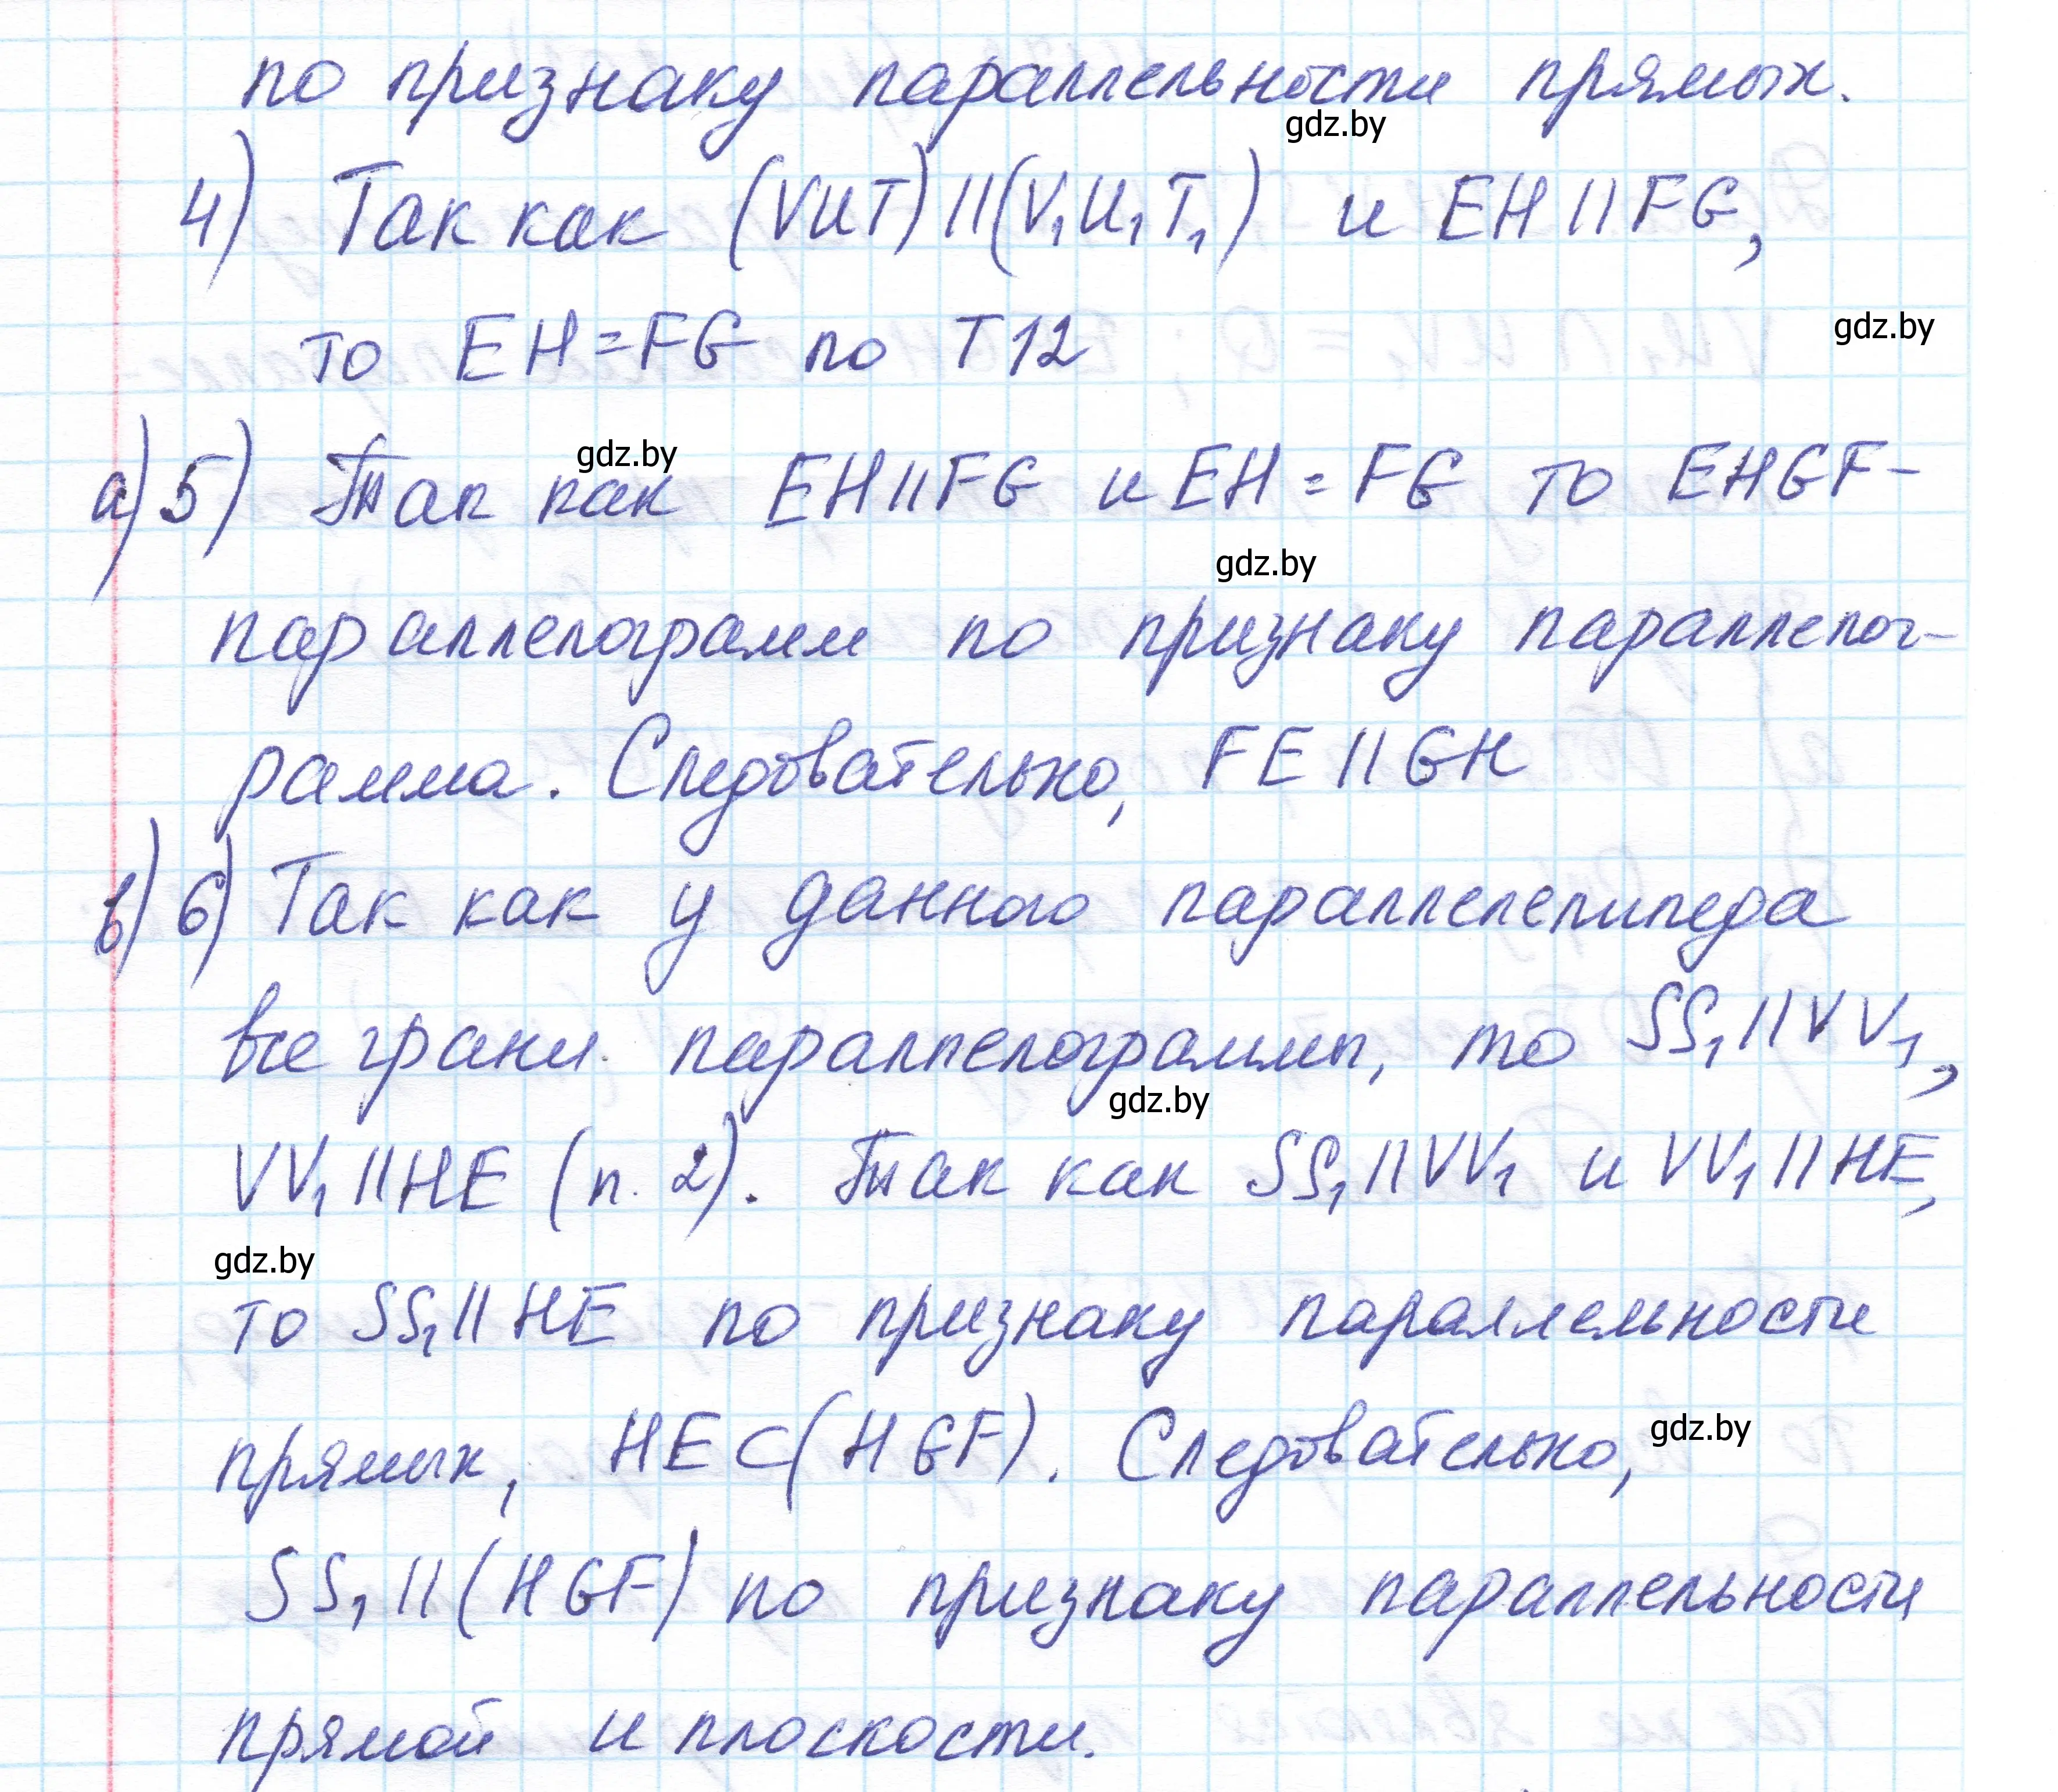 по признаку параллельности прямых.
gdz.by
4) Так как (VUT) || (V₁U₁T₁) и EH || FG,
gdz.by
то EH = FG по Т12
gdz.by
а) 5) Так как EH || FG и EH = FG то EHGF –
gdz.by
параллелограмм по признаку параллелог-
рамма. Следовательно, FE || GH
в) 6) Так как у данного параллелепипеда
все грани параллелограммы, то SS₁ || VV₁,
gdz.by
VV₁ || HE (п. 2). Так как SS₁ || VV₁ и VV₁ || HE,
gdz.by
то SS₁ || HE по признаку параллельности
прямых, HE ⊂ (HGF). Следовательно,
gdz.by
SS₁ || (HGF) по признаку параллельности
прямой и плоскости.